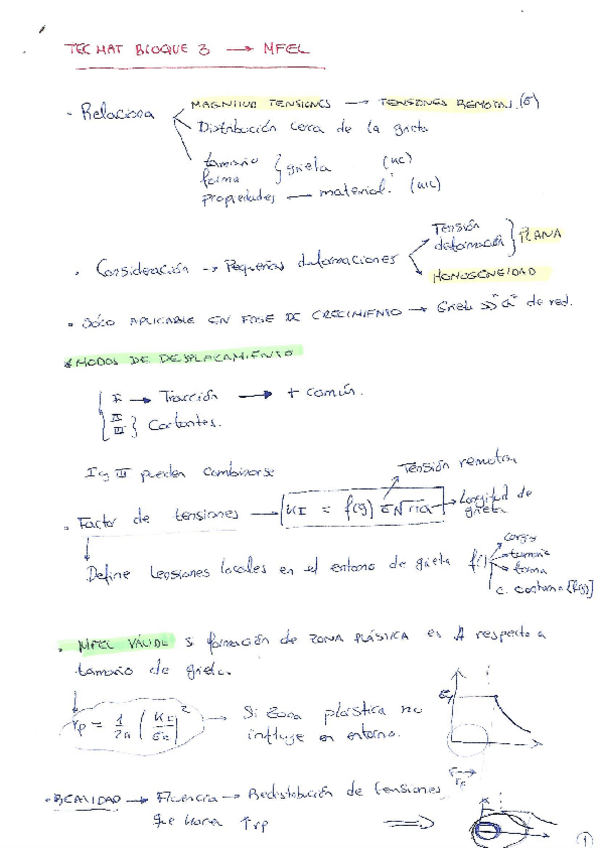 TEC MAT BLOQUE 3 → MFEL
- Relaciona
MAGNITUD TENSIONES → TENSIONES REMOTAS. (σ)
Distribución cerca de la grieta
tamaño
forma } grieta (KC)
propiedades — material. (KIC)
• Consideración → Pequeñas deformaciones
Tensión
deformación } PLANA
HOMOGENEIDAD
• SÓLO APLICABLE EN FASE DE CRECIMIENTO → Grieta >> "a" de red.
MODOS DE DESPLAZAMIENTO
I → Tracción → + común.
II
III } Cortantes.
I y III pueden combinarse
Tensión remota
• Factor de tensiones → KI = f(g) σ√πa → Longitud de grieta
Define tensiones locales en el entorno de grieta f( )
carga
tamaño
forma
c. contorno [f(g)]
• MFEL VÁLIDO si formación de ZONA PLÁSTICA es respecto a
tamaño de grieta.
rp = 1/2π (KI/σ)² → Si zona plástica no
influye en entorno.
rp
• REALIDAD → Fluencia → Redistribución de tensiones
que ↑rp ⇒
1